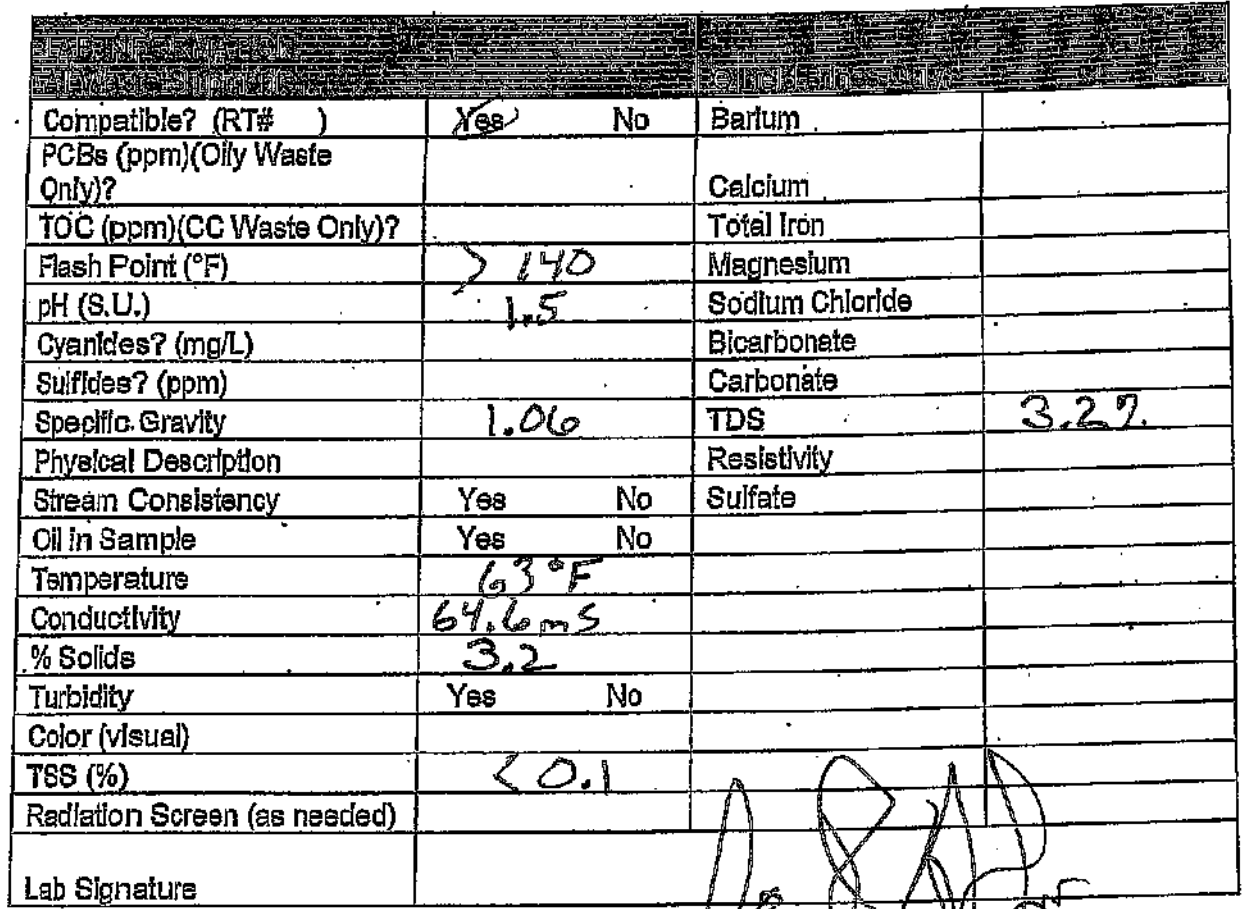 LAB INFORMATION
All Waste Shipments
Compatible? (RT# ) Yes No Barium
PCBs (ppm)(Oily Waste
Only)? Calcium
TOC (ppm)(CC Waste Only)? Total Iron
Flash Point (°F) > 140 Magnesium
pH (S.U.) 1.5 Sodium Chloride
Cyanides? (mg/L) Bicarbonate
Sulfides? (ppm) Carbonate
Specific Gravity 1.06 TDS 3.2%
Physical Description Resistivity
Stream Consistency Yes No Sulfate
Oil in Sample Yes No
Temperature 63°F
Conductivity 64.6 mS
% Solids 3.2
Turbidity Yes No
Color (visual)
TSS (%) < 0.1
Radiation Screen (as needed)
Lab Signature